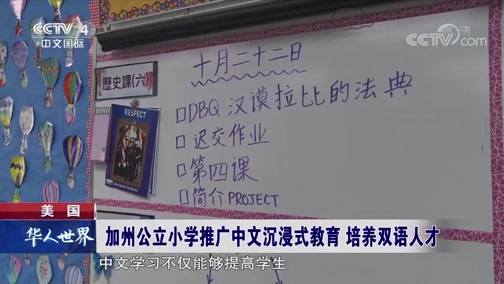 CCTV 4
中文国际
CCTV.com
十月二十二日
歷史課(六)
□DBQ 汉谟拉比的法典
□迟交作业
□第四课
□简介PROJECT
RESPECT
美国
华人世界
加州公立小学推广中文沉浸式教育 培养双语人才
中文学习不仅能够提高学生